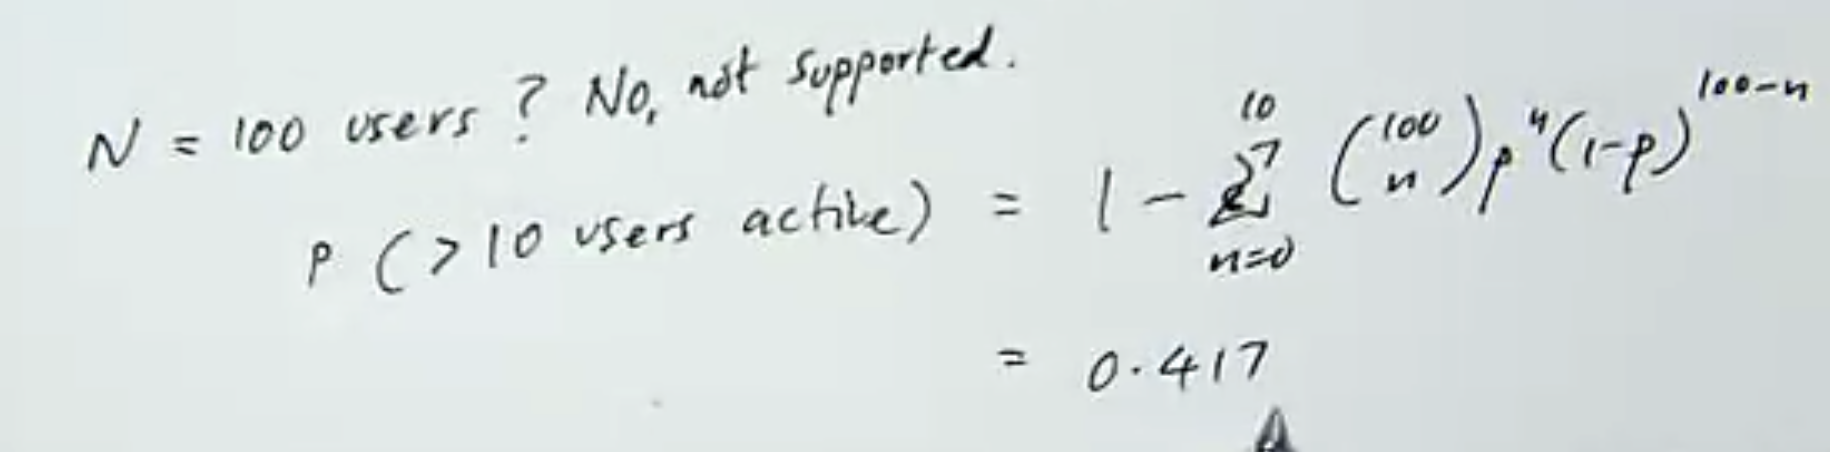 N = 100 users? No, not supported.
P (>10 users active) = 1 - \sum_{n=0}^{10} \binom{100}{n} p^n (1-p)^{100-n}
= 0.417